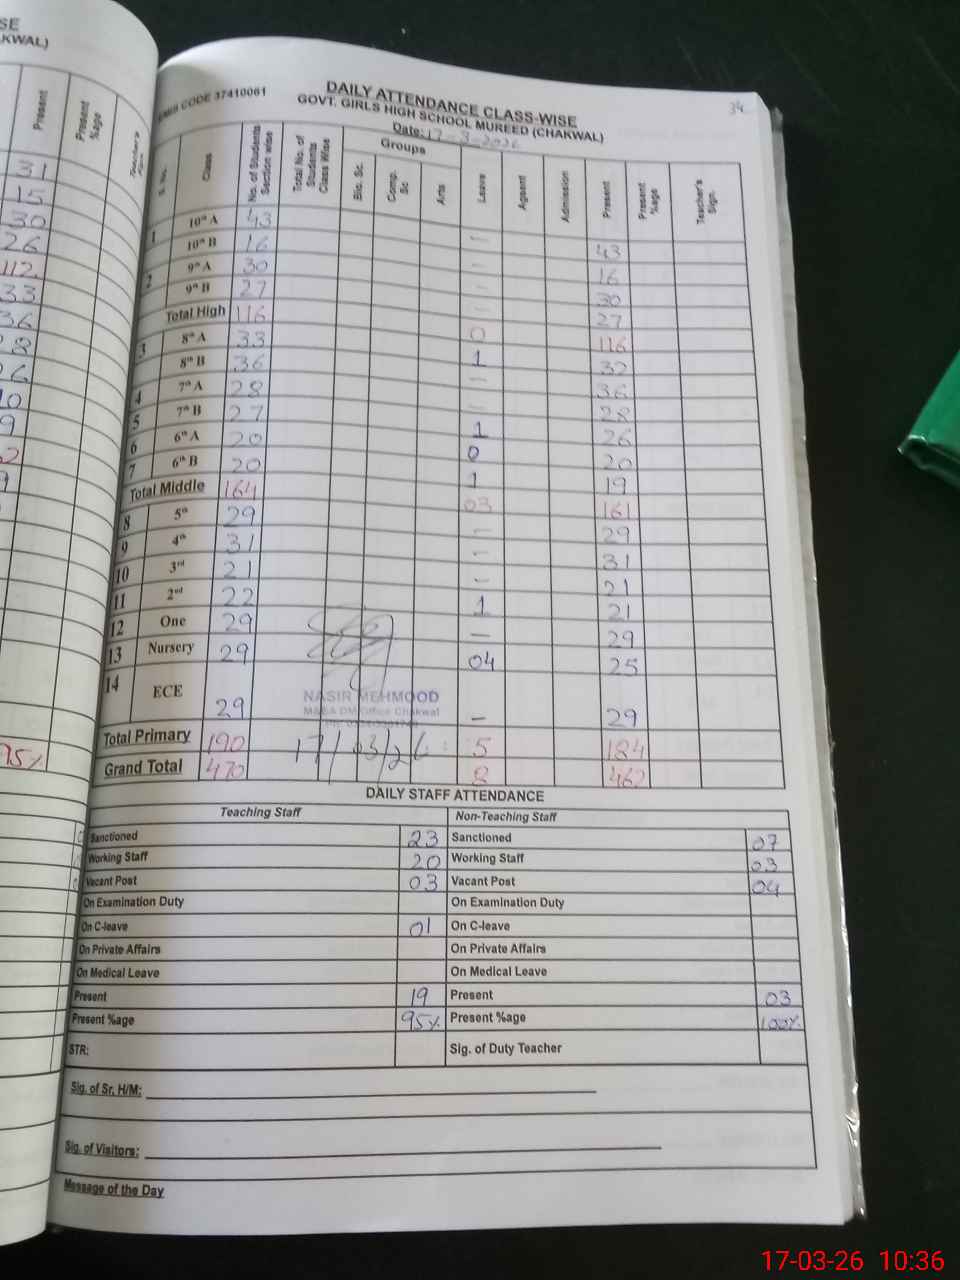 SE
KWAL)
Present
Present %age
31
15
30
26
112
33
36
28
26
10
9
95%
34
EMIS CODE 37410061
DAILY ATTENDANCE CLASS-WISE
GOVT. GIRLS HIGH SCHOOL MUREED (CHAKWAL)
Date: 17-3-2026
S. No. Class No. of Students Section wise Total No. of Students Class Wise Groups Bio. Sc. Comp. Sc Arts Leave Agsent Admission Present Present %age Teacher's Sign.
1 10th A 43 – 43
10th B 16 – 16
2 9th A 30 – 30
9th B 27 – 27
Total High 116 0 116
3 8th A 33 1 32
8th B 36 – 36
4 7th A 28 – 28
5 7th B 27 1 26
6 6th A 20 0 20
7 6th B 20 1 19
Total Middle 164 03 161
8 5th 29 – 29
9 4th 31 – 31
10 3rd 21 – 21
11 2nd 22 1 21
12 One 29 – 29
13 Nursery 29 04 25
14 ECE 29 – 29
NASIR MEHMOOD
M&EA DM Office Chakwal
Total Primary 190 17/03/26 5 184
Grand Total 470 8 462
DAILY STAFF ATTENDANCE
Teaching Staff Non-Teaching Staff
Sanctioned 23 Sanctioned 07
Working Staff 20 Working Staff 03
Vacant Post 03 Vacant Post 04
On Examination Duty On Examination Duty
On C-leave 01 On C-leave
On Private Affairs On Private Affairs
On Medical Leave On Medical Leave
Present 19 Present 03
Present %age 95% Present %age 100%
STR: Sig. of Duty Teacher
Sig. of Sr, H/M:
Sig. of Visitors:
Message of the Day
17-03-26 10:36